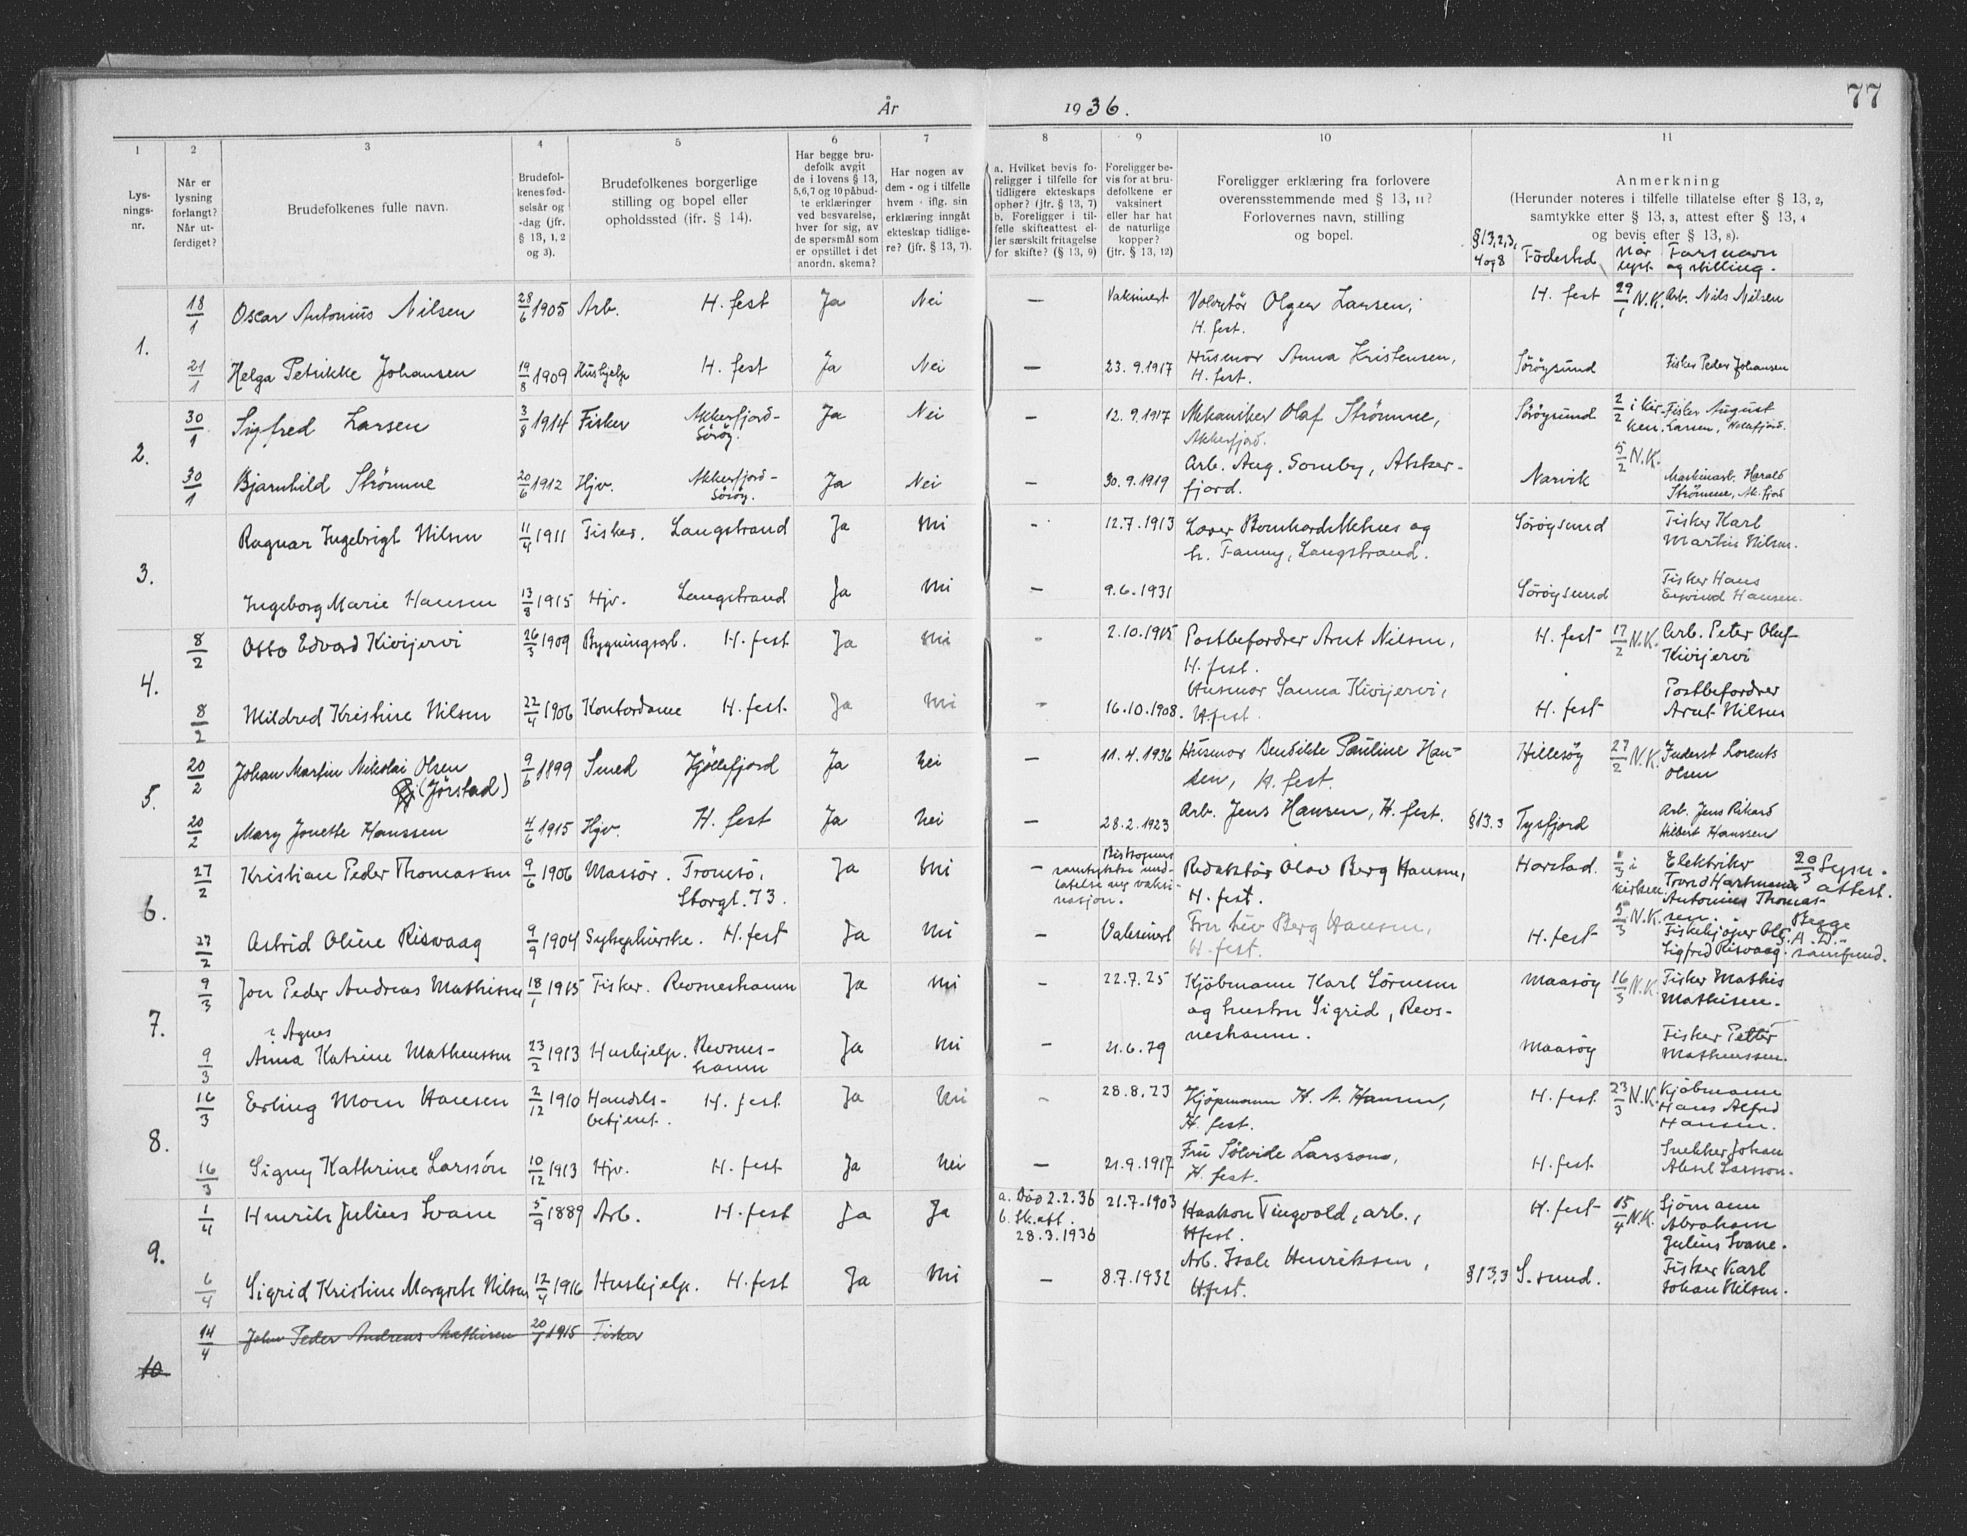 77
År 1936.
1 2 3 4 5 6 7 8 9 10 11
Lysningsnr.
Når er lysning forlangt? Når utferdiget?
Brudefolkenes fulle navn.
Brudefolkenes fødselsår og -dag (jfr. § 13, 1, 2 og 3).
Brudefolkenes borgerlige stilling og bopel eller opholdssted (jfr. § 14).
Har begge brudefolk avgit de i lovens § 13, 5, 6, 7 og 10 påbudte erklæringer ved besvarelse, hver for sig, av de spørsmål som er opstillet i det anordn. skema?
Har nogen av dem - og i tilfelle hvem - iflg. sin erklæring inngått ekteskap tidligere? (jfr. § 13, 7).
a. Hvilket bevis foreligger i tilfelle for tidligere ekteskaps ophør? (jfr. § 13, 7) b. Foreligger i tilfelle skifteattest eller særskilt fritagelse for skifte? (§ 13, 9)
Foreligger bevis for at brudefolkene er vaksinert eller har hat de naturlige kopper? (jfr. § 13, 12)
Foreligger erklæring fra forlovere overensstemmende med § 13, 11? Forlovernes navn, stilling og bopel.
Anmerkning
(Herunder noteres i tilfelle tillatelse efter § 13, 2, samtykke efter § 13, 3, attest efter § 13, 4 og bevis efter § 13, 8).
§13,2,3, 4 og 8 Födested Når lyst. Farsnavn og stilling.
1.
18/1 Oscar Antonius Nilsen 28/6 1905 Arb. H. fest Ja Nei — Vaksinert Olger Larsen, H. fest. H. fest 29/1 N.K. Arb. Nils Nilsen
21/1 Helga Petrikke Johansen 19/8 1909 Hushjelp H. fest Ja Nei — 23.9.1917 Husmor Anna Kristensen, H. fest. Sörøysund Fisker Peder Johansen
2.
30/1 Sigfred Larsen 3/8 1914 Fisker Akkerfjord-Sörøy. Ja Nei — 12.9.1917 Mekaniker Olaf Strømme, Akkerfjord. Sörøysund 2/2 i kirken. Fisker August Larsen,
30/1 Bjarnhild Strømme 20/6 1912 Hjv. Akkerfjord-Sörøy. Ja Nei — 30.9.1919 Arb. Aug. Somby, Akkerfjord. Narvik 5/2 N.K. Maskinarb. Harald Strømme, Ak. fjord
3.
Ragnar Ingebrigt Nilsen 11/4 1911 Fisker. Langstrand Ja Nei - 12.7.1913 og h. Fanny, Langstrand. Sörøysund Fisker Karl Martin Nilsen.
Ingeborg Marie Hansen 13/8 1915 Hjv. Langstrand Ja Nei — 9.6.1931 Sörøysund Fisker Hans Eivind Hansen.
4.
8/2 Otto Edvard Kivijervi 26/3 1909 Bygningsarb. H. fest Ja Nei - 2.10.1915 Postbefordrer Arnt Nilsen, H. fest. H. fest 17/2 N.K. Arb. Peter Oluf Kivijervi
8/2 Mildred Kristine Nilsen 22/4 1906 Kontordame H. fest. Ja Nei - 16.10.1908. Husmor Sanna Kivijervi, Hfest. H. fest Postbefordrer Arnt Nilsen
5.
20/2 Johan Martin Nikolai Olsen (Jørstad) 9/6 1899 Smed Kjøllefjord Ja Nei — 11.4.1936 Husmor Pauline Hansen, H. fest. Hillesøy 27/2 N.K. Inderst Lorents Olsen
20/2 Mary Jonette Hanssen 4/6 1915 Hjv. H. fest Ja Nei — 28.2.1923 Arb. Jens Hansen, H. fest. §13.3 Tysfjord Arb. Jens Rikard Hilbert Hanssen
6.
27/2 Kristian Peder Thomassen 9/6 1906 Massör. Tromsö, Storgt. 73. Ja Nei — Biskopens samtykke Redaktør Olav Berg Hansen, H. fest. Harstad. 1/3 i kirken Elektriker Trond Hartmann Antonius Thomassen. 20/3 Lysn. attest.
27/2 Astrid Oline Risvaag 9/9 1904 Sykepleierske. H. fest Ja Nei — Vaksinert Fru Liv Berg Hansen, H. fest. H. fest 5/3 N.K. Fiskekjøper Ole Sigfred Risvaag. Begge S. A. D. - samfund.
7.
9/3 Jon Peder Andreas Mathisen 18/1 1915 Fisker. Revsneshamn Ja Nei - 22.7.25 Kjöbmann Karl Sörensen og hustru Sigrid, Revsneshamn. Maasøy 16/3 N.K Fisker Mathis Mathisen.
9/3 Agnes Anna Katrine Matheussen 23/2 1913 Hushjelp. Revsneshamn Ja Nei — 21.6.29 Maasøy Fisker Petter Matheussen.
8.
16/3 Erling Moen Hansen 2/12 1910 Handelsbetjent. H. fest Ja Nei - 28.8.23 Kjøpmann H. A. Hansen, H. fest. H. fest 23/3 N.K. Kjøbmann Hans Alfred Hansen.
16/3 Signy Kathrine Larssön 10/12 1913 Hjv. H. fest Ja Nei — 21.9.1917 Fru Sölvide Larsson, H. fest. H. fest Snekker Johan Aksel Larsson.
9.
1/4 Henrik Julius Svane 5/9 1889 Arb. H. fest Ja Ja a. Død 2.2.36 b. Sk.att. 28.3.1936 21.7.1903 Haakon Tingvold, arb., Hfest. H. fest 15/4 N.K. Sjömann Abraham Julius Svane.
6/4 Sigrid Kristine Margrete Nilsen 12/4 1916 Hushjelp. H. fest Ja Nei — 8.7.1932 Arb. Isak Henriksen, Hfest. §13,3 S. sund. Fisker Karl Johan Nilsen.
10
14/4 John Peder Andreas Mathisen 20/1 1915 Fisker